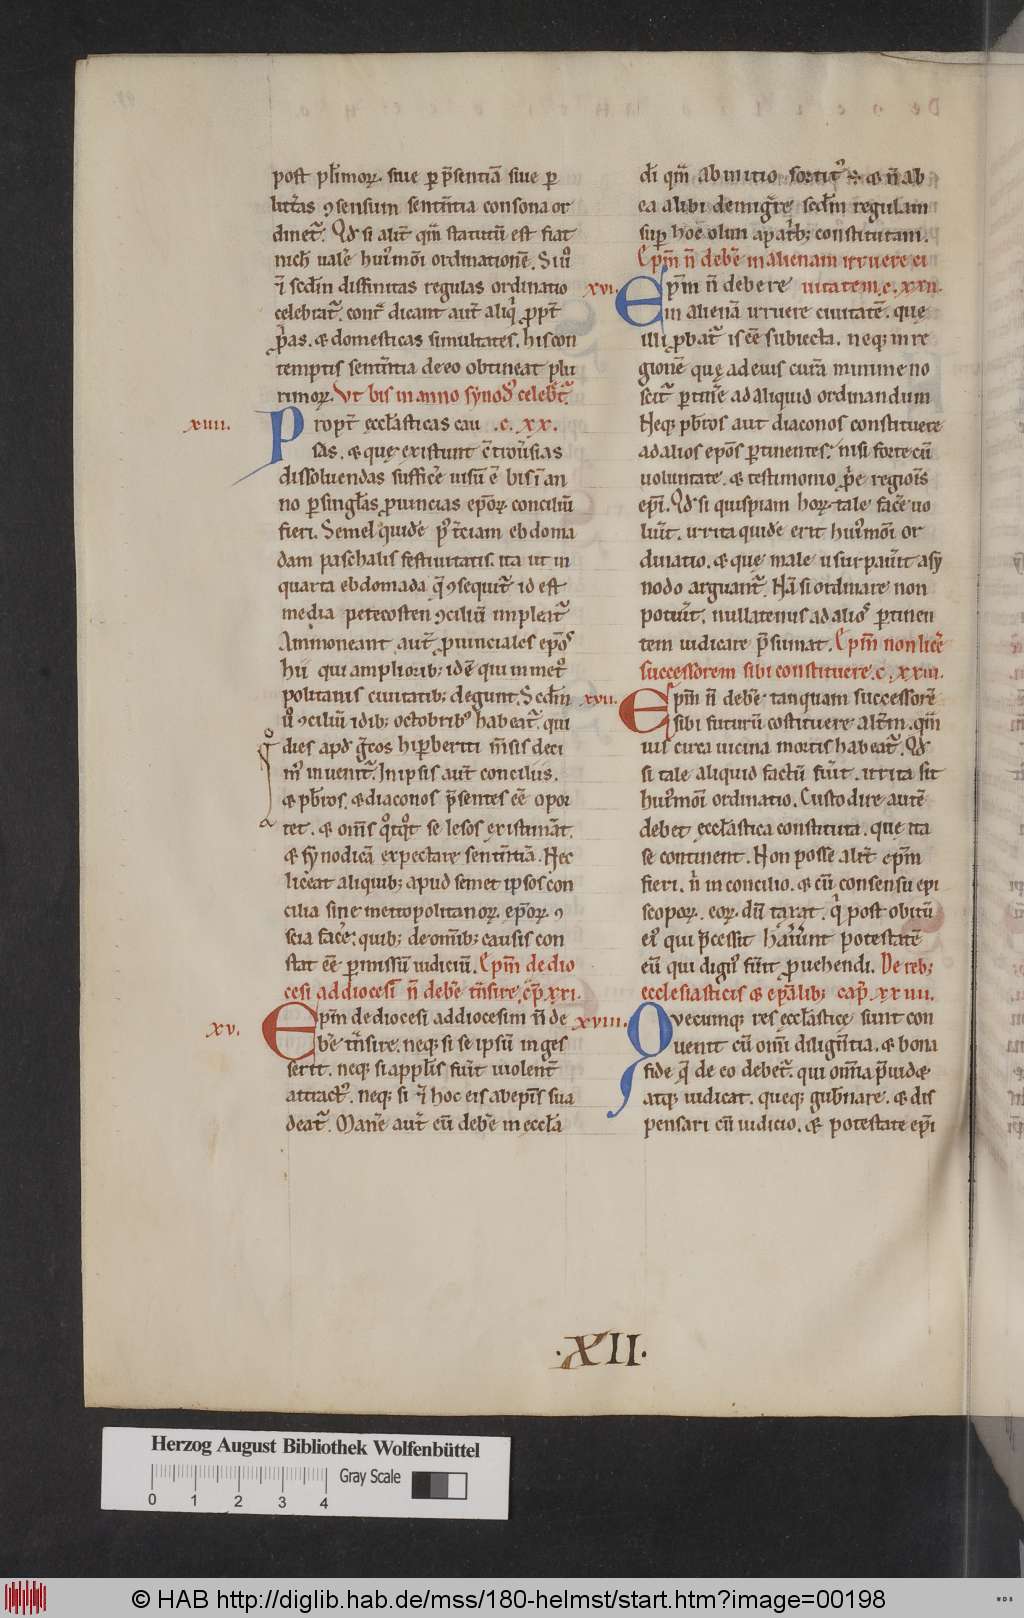 post pl̄imoꝝ. siue ꝑ p̄sentiā siue ꝑ
litt̄as ꝯsensum sent̄ntia consona or
dinet᷑. Qd̄ si alit̄ qm̄ statutū est fiat
nich̄ ualē hui᷒mōi ordinationē. Siu᷒
ī scd̄m diffinitas regulas ordinatio
celebrat᷑. cont̄ dicant aut̄ aliqͥ ꝓpt̄
ꝓp̄as. & domesticas simultates. his con
temptis sent̄ntia de eo obtineat plu
rimoꝝ. Vt bis in anno synod᷒ celeb̄t᷑.
xiiii.
Propt̄ eccl̄asticas cau .c. xx.
sas. & quę existunt c̄trou̓sias
dissoluendas sufficē uisū ē bis ī an
no ꝑ singl̄as ꝓuincias ep̄oꝝ conciliū
fieri. Semel quidē p᷒ t̄ciam ebdoma
dam paschalis festiuitatis. ita ut in
quarta ebdomada q̄ ꝯsequit᷑ id est
media petecosten ꝯciliū impleat᷑
Ammoneant aut̄ ꝓuinciales ep̄os
hii qui amplioribꝫ idē qui in met᷒
politanis ciuitatibꝫ degunt. Scd̄m
u᷒ ꝯciliū idibꝫ octobribꝫ habeat᷑. qui
dies apd̄ g̅cos hiꝑberiti m̄sis deci
m᷒ inuenit᷑. In ipsis aut̄ conciliis.
& pb̄ros. & diaconos p̄sentes eē opor
tet. & om̄s qͦtqͦt se lesos existimāt.
& synodicā expectare sent̄ntiā. Nec
liceat aliquibꝫ apud semet ipsos con
cilia sine metropolitanoꝝ. ep̄oꝝ. ꝯ
scia facē. quibꝫ de om̄ibꝫ causis con
stat eē ꝑmissū iudiciū. Ep̄m de dio
cesi ad diocesī n̄ debē t̄nsire. cp̄. xxi.
xv.
Ep̄m de diocesi ad diocesim n̄ de
bē t̄nsire. neqꝫ si se ipsū inges
serit. neqꝫ si a ppl̄is fuit̄ uiolent̄
attract᷒. neqꝫ si ī hoc eis ab ep̄is sua
deat᷑. Manē aut̄ eū debē in eccl̄a
dī qm̄ ab initio sortit᷒ & n̄ ab
ea alibi demigrare scd̄m regulam
suꝑ hoc olim a pat̄bꝫ constitutam.
Ep̄m n̄ debē in alienam irruere ci
xvi. Ep̄m n̄ debere uitatem. c. xxii.
in alienā irruere ciuitatē. quę
illi ꝓbat᷑ n̄ eē subiecta. neqꝫ in re
gionē quę ad eius curā minime no
scit᷑ ꝑtinē ad aliquid ordinandum
Neqꝫ pb̄ros aut diaconos constituere
ad alios ep̄os ꝑtinentes. nisi forte cū
uoluntate. & testimonio ꝓp̄e regiōis
ep̄i. Qd̄ si quispiam hoꝝ tale facē uo
luit̄. irrita quidē erit hui᷒mōi or
dinatio. & que male usurpauit̄ a sy
nodo arguant᷑. Nā si ordinare non
potuit̄. nullatenus ad alios ꝑtinen
tem iudicare p̄sumat. Ep̄m non licē
successorem sibi constituere. c. xxiii.
xvii. Ep̄m n̄ debē tanquam successorē
sibi futurū costituere alt̄m. qm̄
uis circa uicina mortis habeat᷑. Qd̄
si tale aliquid factū fuit̄. irrita sit
hui᷒mōi ordinatio. Custodire autē
debet eccl̄astica constituta. que ita
se continent. Non posse alit̄ ep̄m
fieri. n̄ in concilio. & cū consensu epi
scopoꝝ. eoꝝ. dū taxat. qͥ post obitū
ei᷒ qui p̄cessit habuerint potestatē
eū qui dign᷒ fuit̄ ꝓuehendi. De rebꝫ
ecclesiasticis & ep̄alibꝫ cap̄. xxiiii.
xviii. Quecumqꝫ res eccl̄astice sunt con
uenit cū om̄i diligentia. & bona
fide q̄ de eo debet᷑. qui om̄ia p̄uidę
atqꝫ iudicat. queqꝫ gub̄nare. & dis
pensari cū iudicio. & potestate ep̄i
.XII.
Herzog August Bibliothek Wolfenbüttel
0 1 2 3 4
Gray Scale
© HAB http://diglib.hab.de/mss/180-helmst/start.htm?image=00198